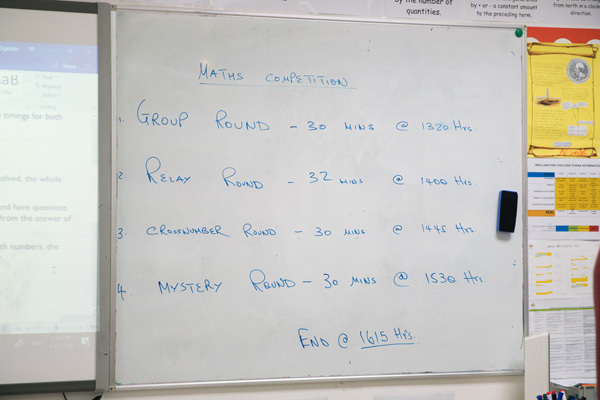 by the number of
quantities.
by + or - a constant amount
to the preceding term.
direction.
Share
Replace
timings for both
olved, the whole
and have questions
from the answer of
th numbers, the
MATHS COMPETITION
1. GROUP ROUND - 30 MINS @ 1320 Hrs.
2. RELAY ROUND - 32 MINS @ 1400 Hrs.
3. CROSSNUMBER ROUND - 30 MINS @ 1445 Hrs.
4. MYSTERY ROUND - 30 MINS @ 1530 Hrs.
END @ 1615 Hrs.